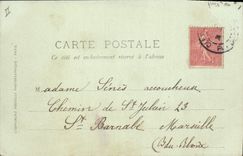 CARTE POSTALE
Ce côté est exclusivement réservé à l'adresse
Madame Sénès accoucheuse
Chemin de St Julien 23
St Barnabé Marseille